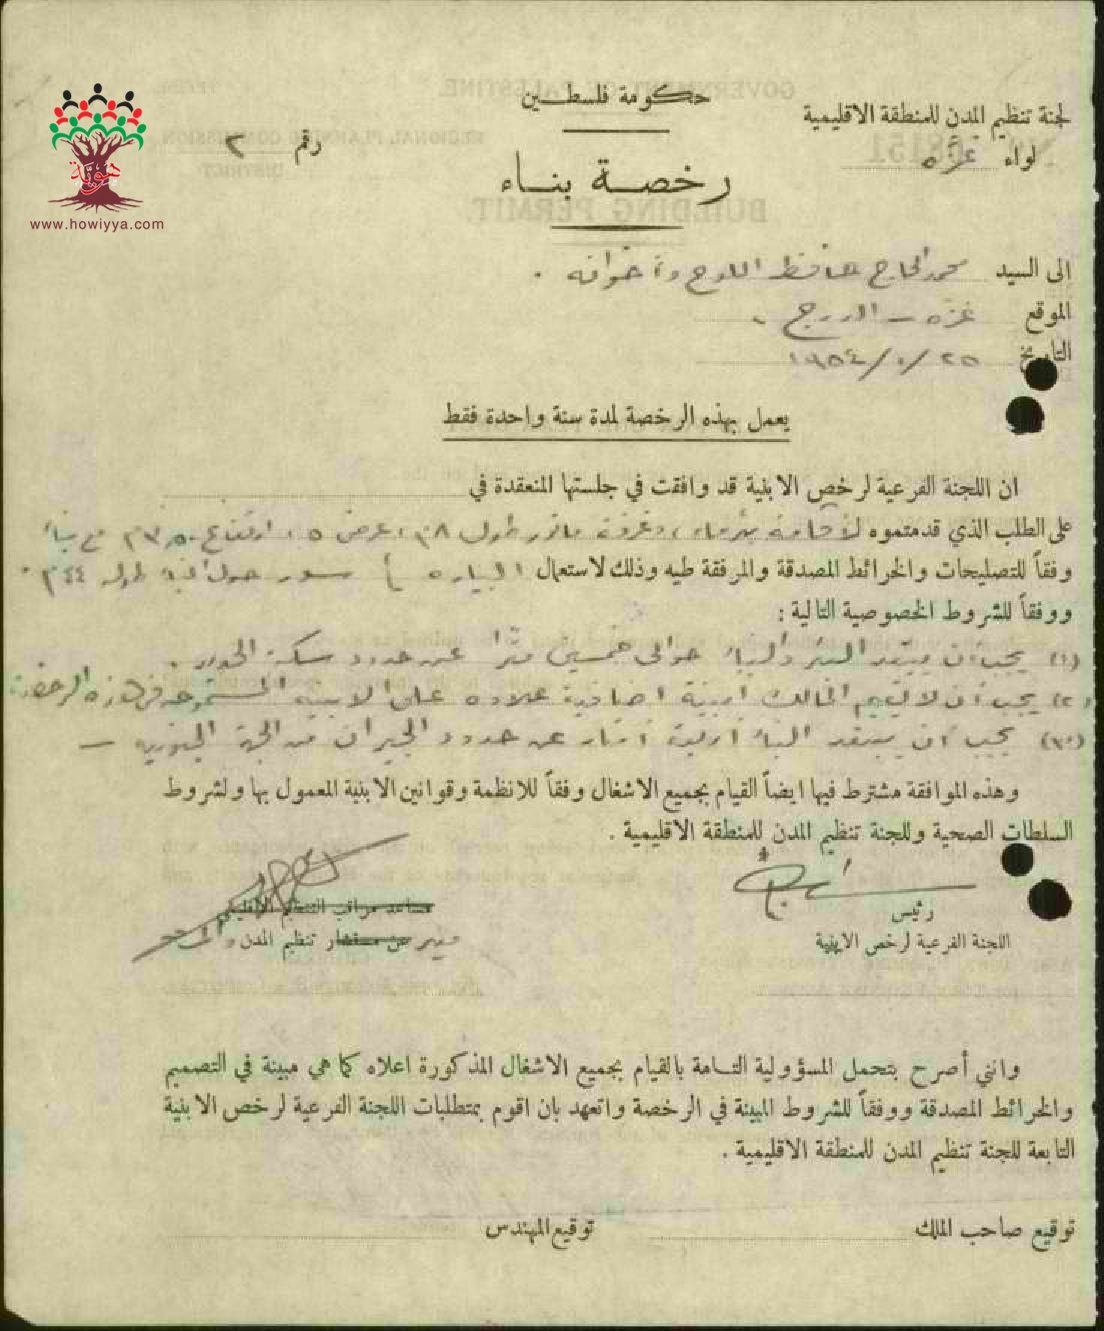 حكومة فلسطين
لجنة تنظيم المدن للمنطقة الاقليمية
لواء غزه
رقم ٢
هوية
www.howiyya.com
رخصة بناء
الى السيد محمد الحاج حافظ اللوح واخوانه .
الموقع غزه - الدرج .
التاريخ ٢٥ / ١ / ١٩٥٤
يعمل بهذه الرخصة لمدة سنة واحدة فقط
ان اللجنة الفرعية لرخص الابنية قد وافقت في جلستها المنعقدة في
على الطلب الذي قدمتموه لاقامة بئر ماء ، وغرفة ماتور طول ٨م ، عرض ٥ ، ارتفاع
وفقاً للتصليحات والخرائط المصدقة والمرفقة طيه وذلك لاستعمال البياره سور حول طول ٤٤م .
ووفقاً للشروط الخصوصية التالية :
(١) يجب أن يبتعد البئر والبناء حوالي خمسين مترا عن حدود سكة الحديد .
(٢) يجب أن لا يقيم المالك أبنية اضافية علاوه على الابنيه هذه الرخصة
(٣) يجب أن يبتعد البناء أربعة أمتار عن حدود الجيران من الجهة الجنوبيه -
وهذه الموافقة مشترط فيها ايضاً القيام بجميع الاشغال وفقاً للانظمة وقوانين الابنية المعمول بها ولشروط
السلطات الصحية وللجنة تنظيم المدن للمنطقة الاقليمية .
رئيس
اللجنة الفرعية لرخص الابنية
مساعد مراقب التنظيم الاقليمي
عن مستشار تنظيم المدن
وانني أصرح بتحمل المسؤولية التامة بالقيام بجميع الاشغال المذكورة اعلاه كما هي مبينة في التصميم
والخرائط المصدقة ووفقاً للشروط المبينة في الرخصة واتعهد بان اقوم بمتطلبات اللجنة الفرعية لرخص الابنية
التابعة للجنة تنظيم المدن للمنطقة الاقليمية .
توقيع صاحب الملك
توقيع المهندس